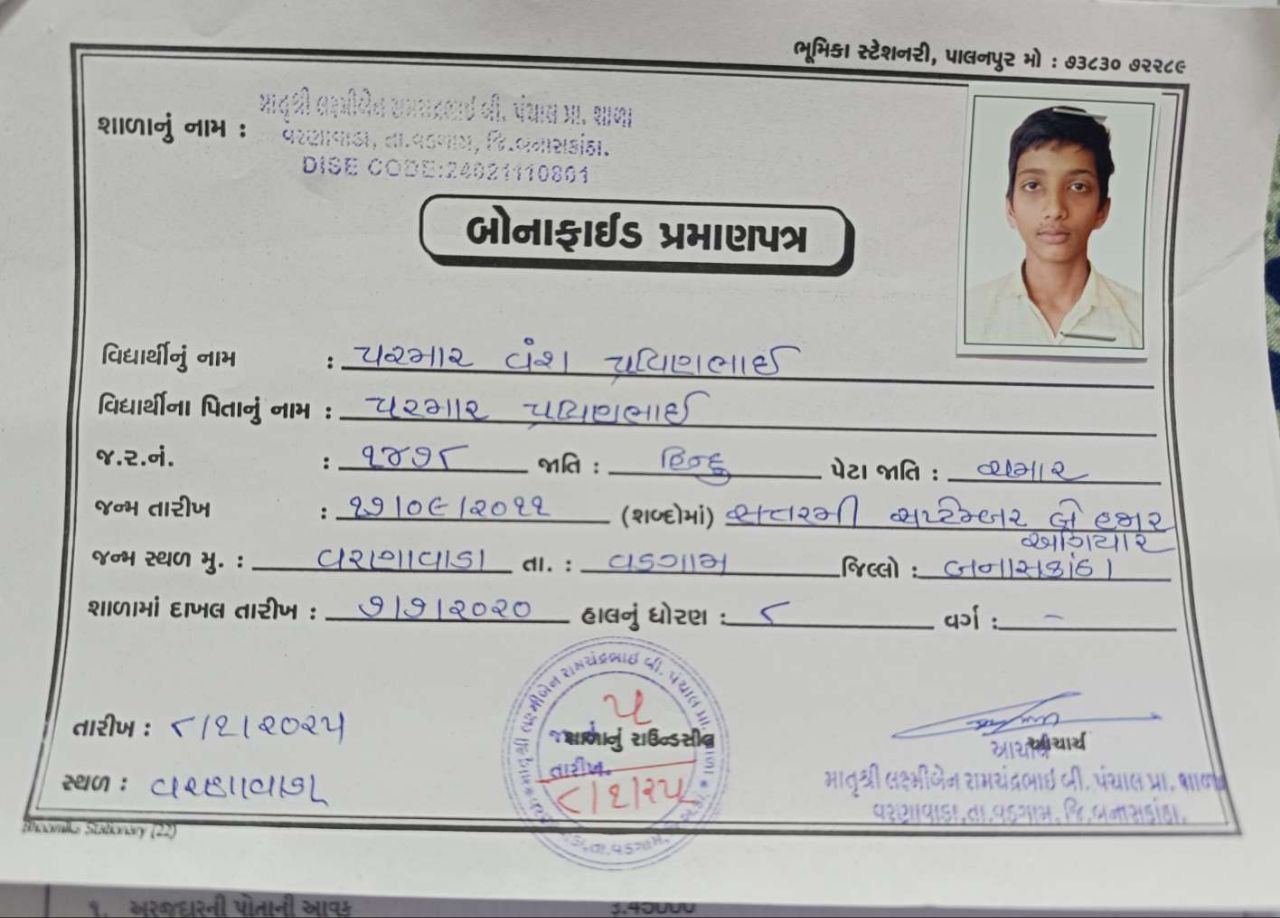 ભૂમિકા સ્ટેશનરી, પાલનપુર મો : ૭૩૮૩૦ ૭૨૨૮૯
શાળાનું નામ : માતૃશ્રી લક્ષ્મીબેન રામચંદ્રભાઇ બી. પંચાલ પ્રા. શાળા
વરણાવાડા, તા.વડગામ, જિ.બનાસકાંઠા.
DISE CODE:24021110801
બોનાફાઈડ પ્રમાણપત્ર
વિદ્યાર્થીનું નામ : પરમાર વંશ પ્રવિણભાઈ
વિદ્યાર્થીના પિતાનું નામ : પરમાર પ્રવિણભાઈ
જ.ર.નં. : ૧૪૭૮ જાતિ : હિન્દુ પેટા જાતિ : ચમાર
જન્મ તારીખ : ૧૭/૦૯/૨૦૧૧ (શબ્દોમાં) સત્તરમી સપ્ટેમ્બર બે હજાર
અગિયાર
જન્મ સ્થળ મુ. : વરણાવાડા તા. : વડગામ જિલ્લો : બનાસકાંઠા
શાળામાં દાખલ તારીખ : ૭/૭/૨૦૨૦ હાલનું ધોરણ : ૮ વર્ગ : -
માતૃશ્રી લક્ષ્મીબેન રામચંદ્રભાઇ બી. પંચાલ પ્રા. શાળા
૫
શાળાનું રાઉન્ડસીલ
તારીખ.
૮/૧/૨૫
તારીખ : ૮/૧/૨૦૨૫
સ્થળ : વરણાવાડા
આચાર્ય
આચાર્ય
માતૃશ્રી લક્ષ્મીબેન રામચંદ્રભાઇ બી. પંચાલ પ્રા. શાળા
વરણાવાડા,તા.વડગામ, જિ.બનાસકાંઠા.
Bhoomika Stationary (22)
૧. અરજદારની પોતાની આવક રૂ.45000